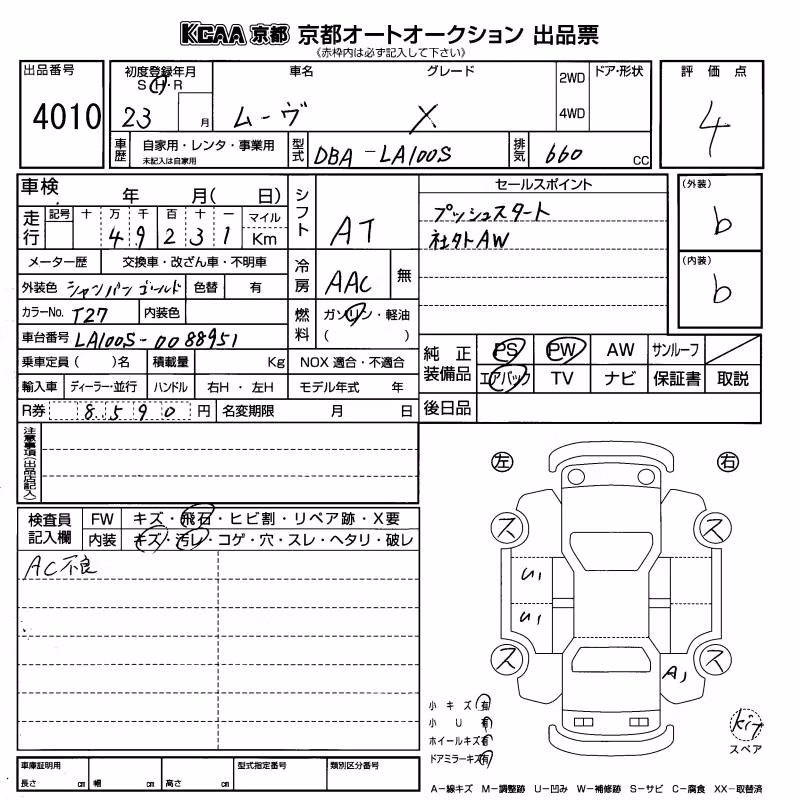 KCAA 京都 京都オートオークション 出品票
《赤枠内は必ず記入して下さい》
出品番号
4010
初度登録年月
S・H・R
23 月
車名
ムーヴ
グレード
X
2WD
4WD
ドア・形状
評価点
4
車歴
自家用・レンタ・事業用
未記入は自家用
型式
DBA-LA100S
排気
660 CC
車検 年 月( 日)
走行
記号 十 万 千 百 十 一 マイル
4 9 2 3 1 Km
メーター歴 交換車・改ざん車・不明車
外装色 シャンパンゴールド 色替 有
カラーNo. T27 内装色
車台番号 LA100S-0088951
乗車定員 ( )名 積載量 Kg NOX 適合・不適合
輸入車 ディーラー・並行 ハンドル 右H・左H モデル年式 年
R券 8590 円 名変期限 月 日
シフト
AT
冷房
AAC 無
燃料
ガソリン・軽油
( )
セールスポイント
プッシュスタート
社外AW
(外装)
b
(内装)
b
純正装備品
PS PW AW サンルーフ
エアバック TV ナビ 保証書 取説
後日品
注意事項(出品店記入)
検査員記入欄
FW キズ・飛石・ヒビ割・リペア跡・X要
内装 キズ・汚レ・コゲ・穴・スレ・ヘタリ・破レ
AC不良
左 右
ス ス
U1
U1
ス ス
A1
小キズ 有
小U 有
ホイールキズ 有
ドアミラーキズ 有
kit
スペア
車庫証明用
長さ cm 幅 cm 高さ cm
型式指定番号
類別区分番号
A－線キズ M－調整跡 U－凹み W－補修跡 S－サビ C－腐食 XX－取替済